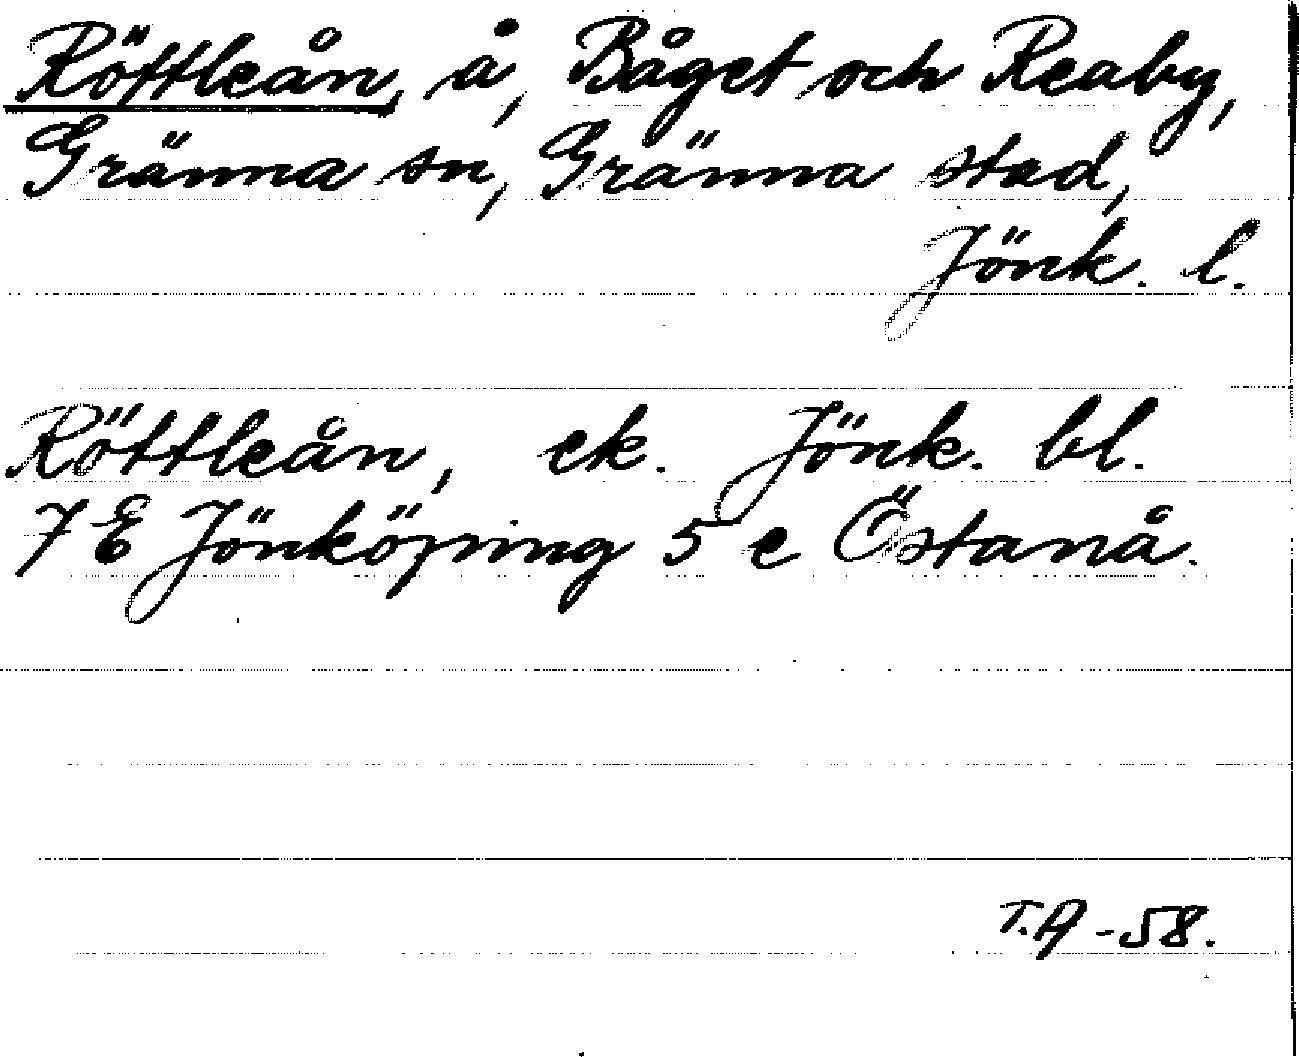 Röttleån, å, Båget och Reaby,
Gränna sn, Gränna stad,
Jönk. l.
Röttleån, ek. Jönk. bl.
7 E Jönköping 5 e Östanå.
T.A -58.